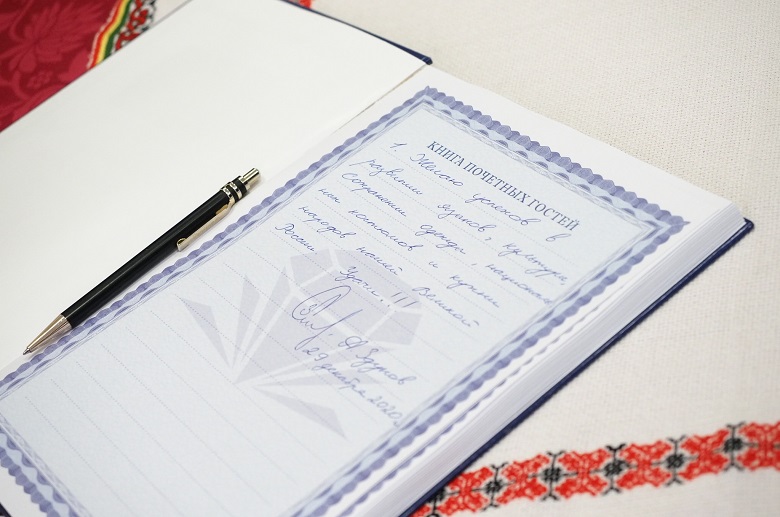 КНИГА ПОЧЕТНЫХ ГОСТЕЙ
1. Желаю успехов в
развитии языков, культуры,
сохранении одежды националь
ных костюмов и кухни
народов нашей Великой
России. Удачи!!!
29 декабря 2020